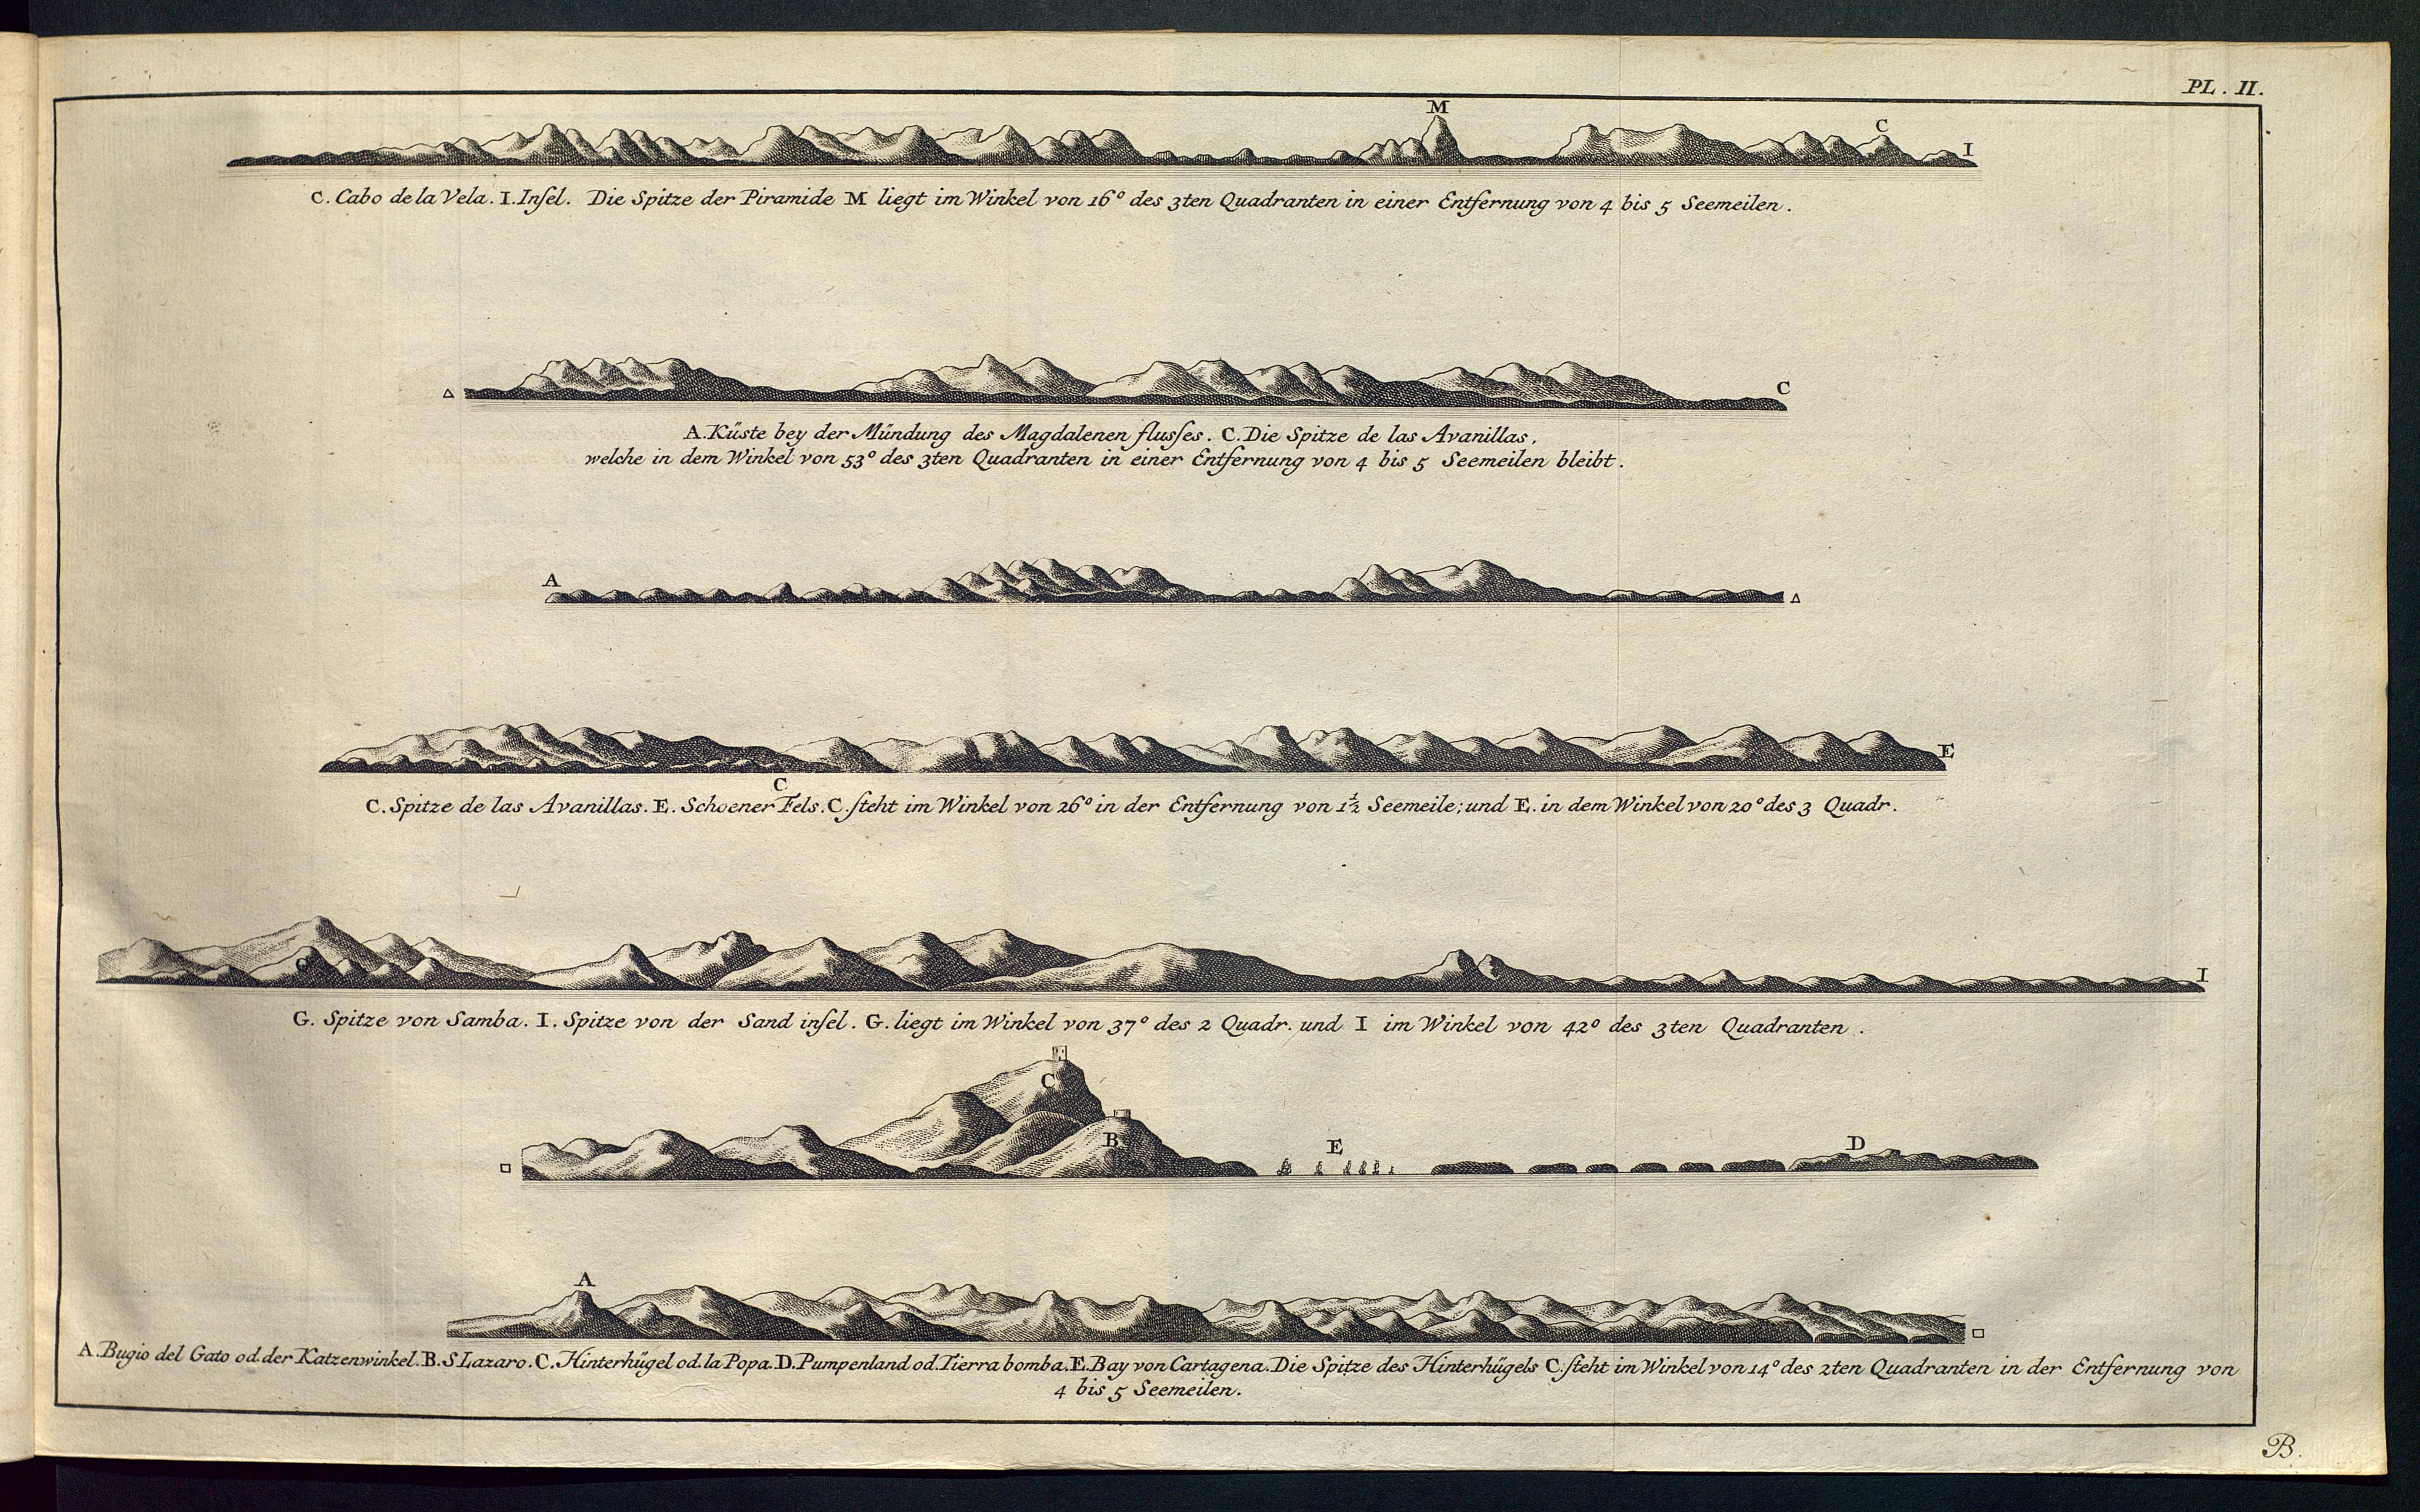 PL. II.
M
C
I
C. Cabo de la Vela. I. Insel. Die Spitze der Piramide M liegt im Winkel von 16° des 3ten Quadranten in einer Entfernung von 4 bis 5 Seemeilen.
△
C
A. Küste bey der Mündung des Magdalenen flusses. C. Die Spitze de las Avanillas,
welche in dem Winkel von 53° des 3ten Quadranten in einer Entfernung von 4 bis 5 Seemeilen bleibt.
A
△
E
C
C. Spitze de las Avanillas. E. Schoener Fels. C. steht im Winkel von 26° in der Entfernung von 1½ Seemeile; und E. in dem Winkel von 20° des 3 Quadr.
G
I
G. Spitze von Samba. I. Spitze von der Sand insel. G. liegt im Winkel von 37° des 2 Quadr. und I im Winkel von 42° des 3ten Quadranten.
C
B
E
D
□
A
□
A. Bugio del Gato od. der Katzenwinkel. B. S Lazaro. C. Hinterhügel od. la Popa. D. Pumpenland od. Tierra bomba. E. Bay von Cartagena. Die Spitze des Hinterhügels C. steht im Winkel von 14° des 2ten Quadranten in der Entfernung von
4 bis 5 Seemeilen.
B.